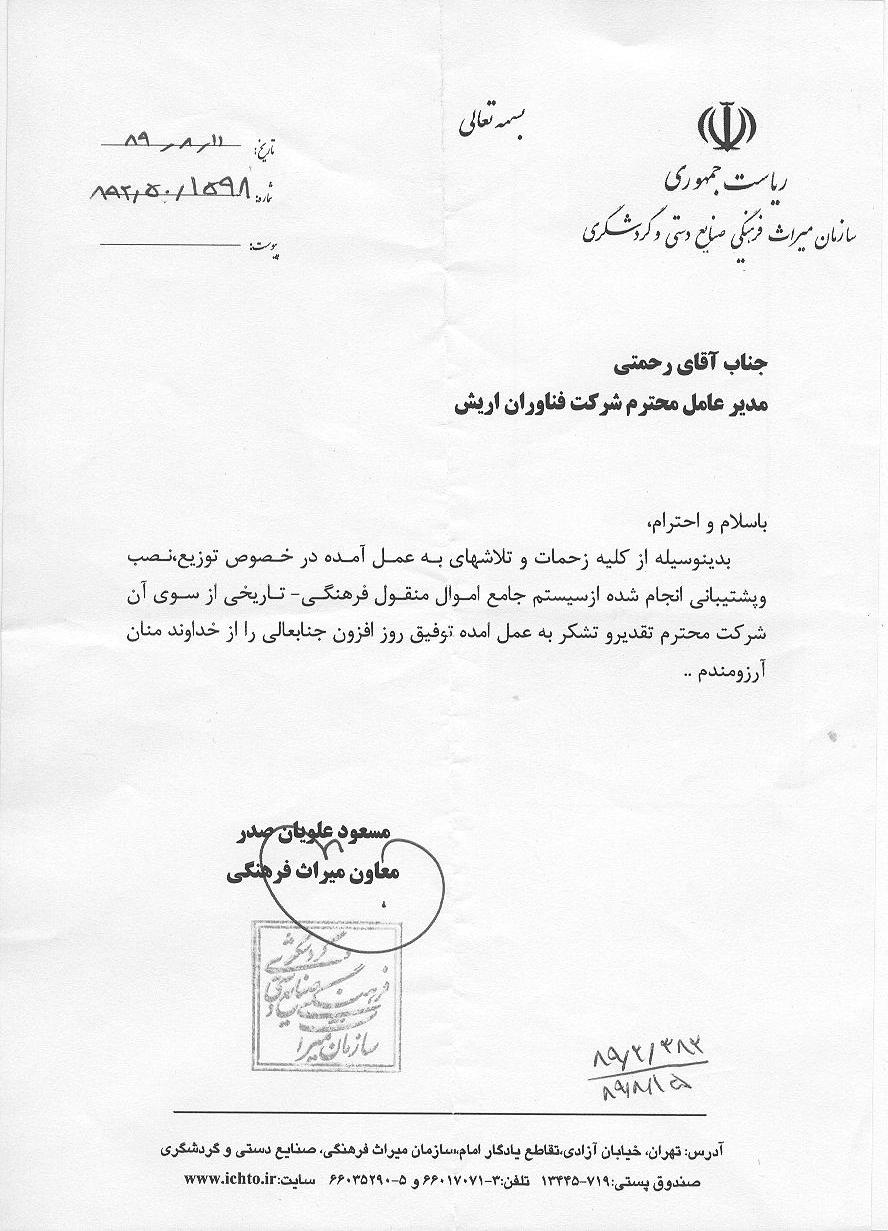 بسمه تعالی
ریاست جمهوری
سازمان میراث فرهنگی صنایع دستی و گردشگری
تاریخ: ۸۹/۸/۱۱
شماره: ۸۹۲/۵۰/۱۵۹۸
پیوست:
جناب آقای رحمتی
مدیر عامل محترم شرکت فناوران اریش
باسلام و احترام،
بدینوسیله از کلیه زحمات و تلاشهای به عمل آمده در خصوص توزیع،نصب
وپشتیبانی انجام شده ازسیستم جامع اموال منقول فرهنگی- تاریخی از سوی آن
شرکت محترم تقدیرو تشکر به عمل امده توفیق روز افزون جنابعالی را از خداوند منان
آرزومندم ..
مسعود علویان صدر
معاون میراث فرهنگی
گردشگری
فرهنگی صنایع دستی و
سازمان میراث
۸۹/۲/۳۸۲
۸۹/۸/۱۵
آدرس: تهران، خیابان آزادی،تقاطع یادگار امام،سازمان میراث فرهنگی، صنایع دستی و گردشگری
صندوق پستی:۷۱۹-۱۳۴۴۵ تلفن:۳-۶۶۰۱۷۰۷۱ و ۵-۶۶۰۳۵۲۹۰ سایت:www.ichto.ir